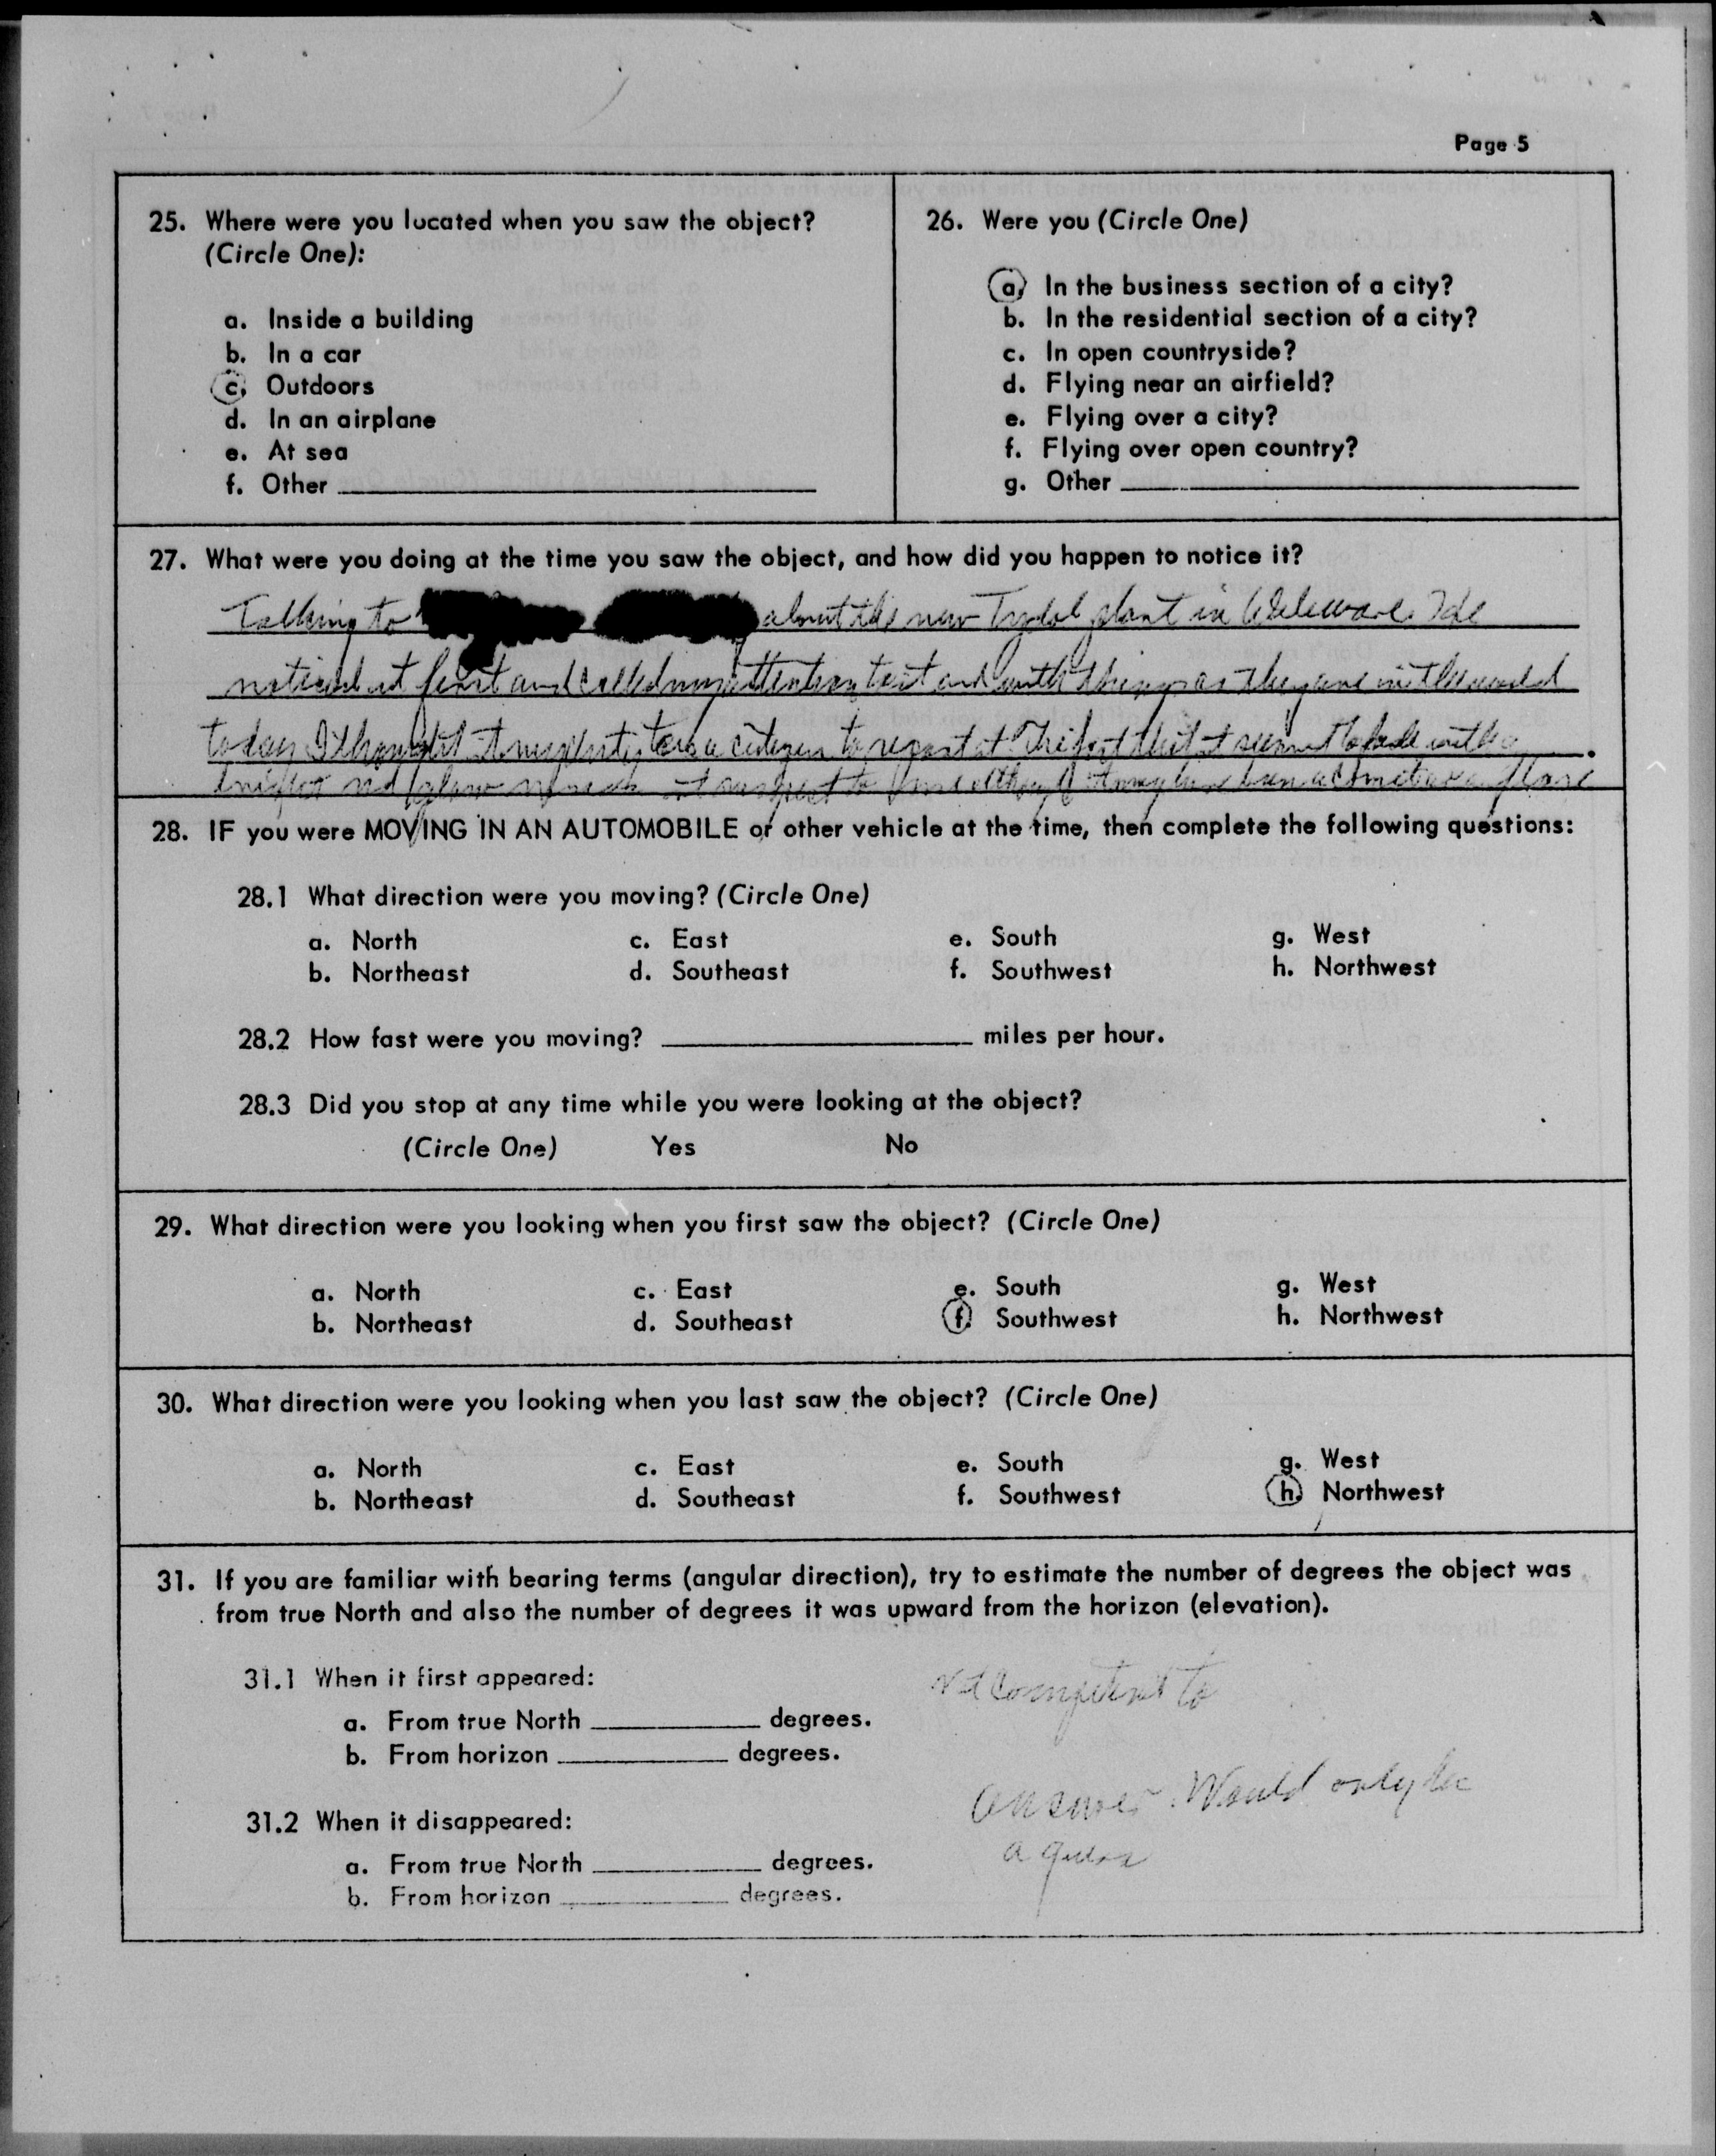 Page 5
25. Where were you located when you saw the object?
(Circle One):
a. Inside a building
b. In a car
c. Outdoors
d. In an airplane
e. At sea
f. Other
26. Were you (Circle One)
a. In the business section of a city?
b. In the residential section of a city?
c. In open countryside?
d. Flying near an airfield?
e. Flying over a city?
f. Flying over open country?
g. Other
27. What were you doing at the time you saw the object, and how did you happen to notice it?
Talking to about the new Tydol plant in Delaware. He
noticed it first and called my attention to it and with things as they are in the world
today I thought it my duty to as a citizen to report it. The fact that it seemed to fade
bright not glow it may have been a
28. IF you were MOVING IN AN AUTOMOBILE or other vehicle at the time, then complete the following questions:
28.1 What direction were you moving? (Circle One)
a. North c. East e. South g. West
b. Northeast d. Southeast f. Southwest h. Northwest
28.2 How fast were you moving? miles per hour.
28.3 Did you stop at any time while you were looking at the object?
(Circle One) Yes No
29. What direction were you looking when you first saw the object? (Circle One)
a. North c. East e. South g. West
b. Northeast d. Southeast f. Southwest h. Northwest
30. What direction were you looking when you last saw the object? (Circle One)
a. North c. East e. South g. West
b. Northeast d. Southeast f. Southwest h. Northwest
31. If you are familiar with bearing terms (angular direction), try to estimate the number of degrees the object was
from true North and also the number of degrees it was upward from the horizon (elevation).
31.1 When it first appeared:
a. From true North degrees.
b. From horizon degrees.
Not competent to
answer. Would only be
a guess
31.2 When it disappeared:
a. From true North degrees.
b. From horizon degrees.